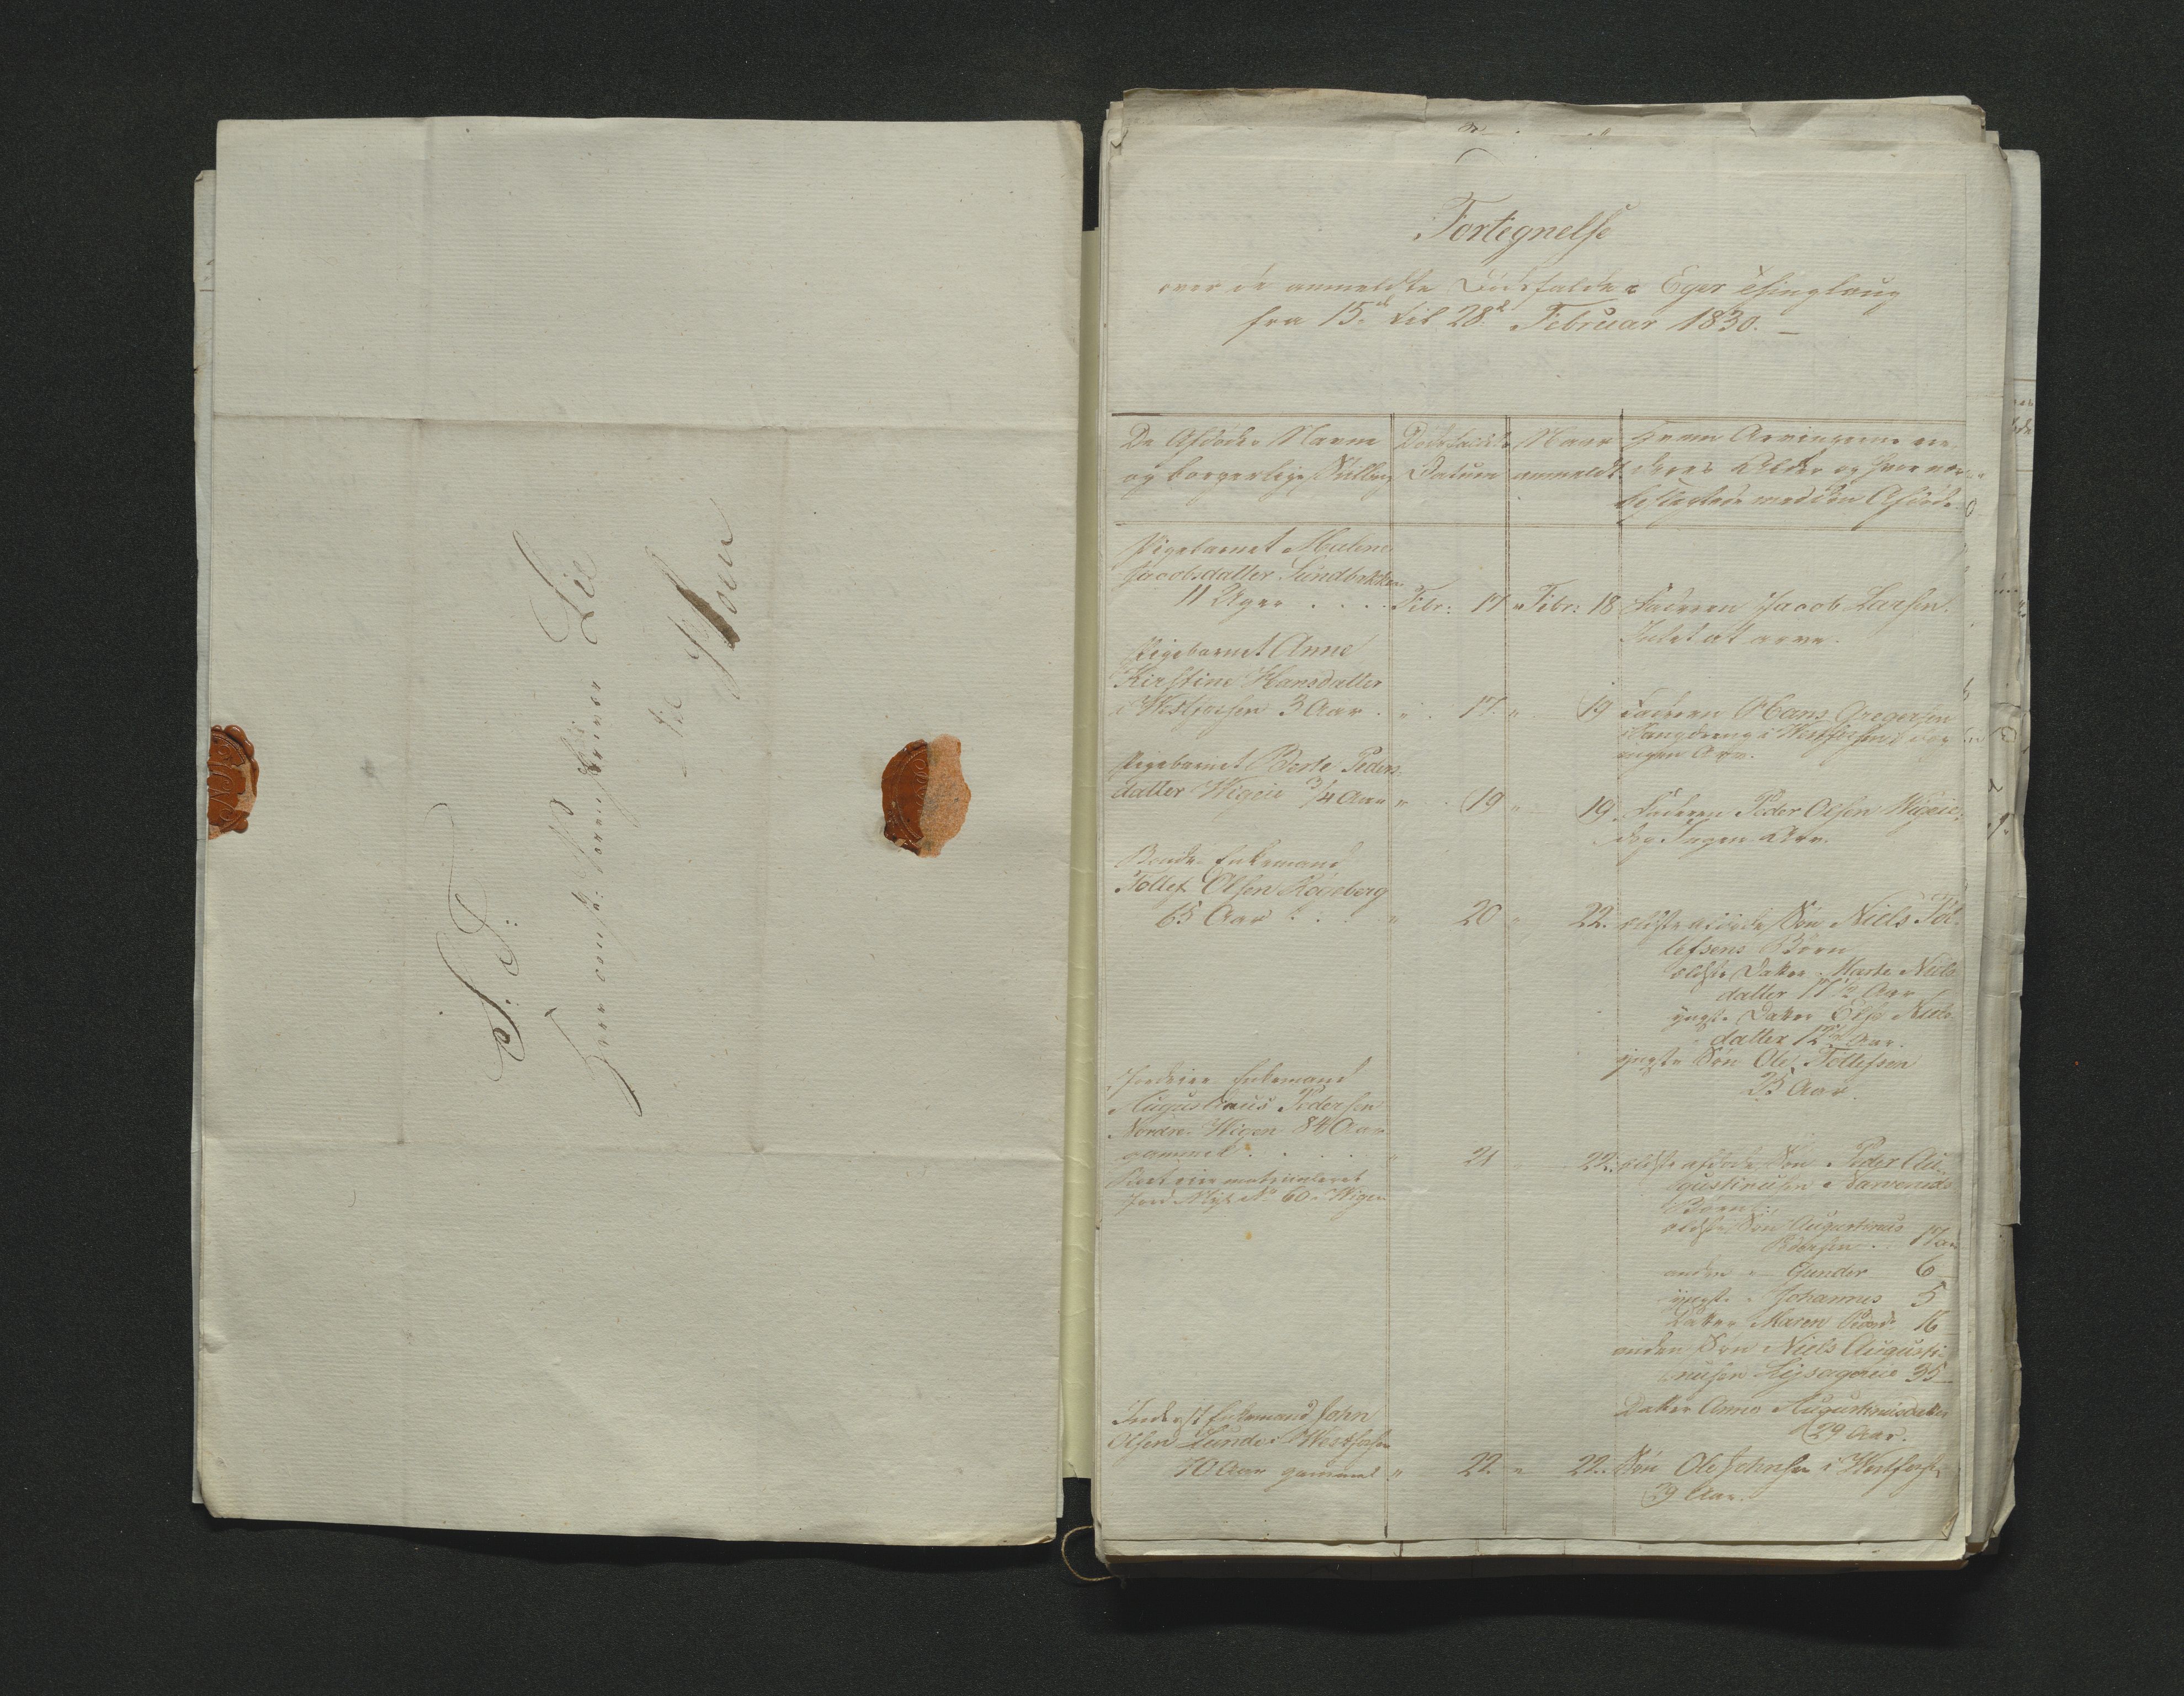 S: T:
Herr Sorenskriver Lie
til
Hoen
Fortegnelse
over de anmeldte Dödsfalde i Eger Thinglaug
fra 15de til 28de Februar 1830. –
De Afdödes Navne
og borgerlige Stilling
Dödsfaldets
Datum
Naar
anmeldt
Hvem Arvingerne ere
deres Alder og hvor nær
beslægtede med den Afdöde
Pigebarnet Maline
Jacobsdatter Sundbakken
11 Uger . . . . Febr: 17 " Febr: 18 Faderen Jacob Larsen.
Intet at arve.
Pigebarnet Anne
Kirstine Hansdatter
i Westfossen 3 Aar . " . 17. " 19 Faderen Hans Gregersen
i Westfossen, dog
ingen Arv.
Pigebarnet Dorte Peders
datter Wigeie 3/4 Aar " . 19 " 19. Faderen Peder Olsen Wigeie,
dog Ingen Arv.
Bonde Enkemand
Tollef Olsen Kogeberg
65 Aar . . . " 20 " 22. ældste afdöde Sön Niels Tol-
lefsens Börn
ældste Datter Marte Niels
datter 17 1/2 Aar
yngste Datter Else Niels-
datter 12 Aar.
yngste Sön Ole Tollefsen
23 Aar.
Gaardeier Enkemand
Augustinus Pedersen
Nordre Wigen 84 Aar
gammel . . . . " 21 22. ældste afdöde Sön Peder Au-
gustinusen Narverud
Börn:
matriculeret
Jord No 60 Wigen
ældste Sön Augustinus
Pedersen . . 17 Aar
anden " Gunder 6
yngste " Johannes 5
Datter Maren Peders 16
anden Sön Niels Augusti-
nusen 35
Datter Anne Augustinusdatter
29 Aar.
Inderst Enkemand John
Olsen Lunde i Westfossen
70 Aar gammel " 22. " 22. Sön Ole Johnsen i Westfossen
39 Aar.